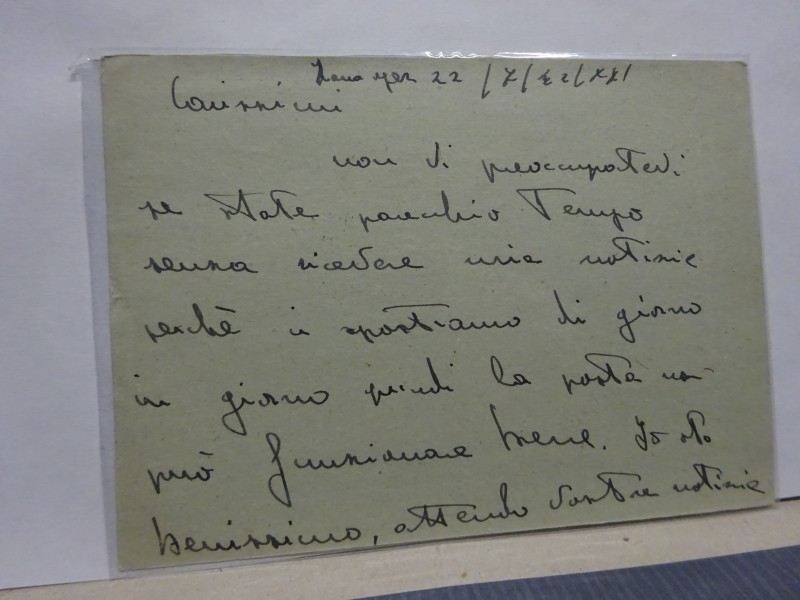 22/7/42/XX
Carissimi
non vi preoccupatevi
se state parecchio Tempo
senza ricevere mie notizie
perchè ci spostiamo di giorno
in giorno quindi la posta non
può funzionare bene. Io sto
benissimo, attendo vostre notizie